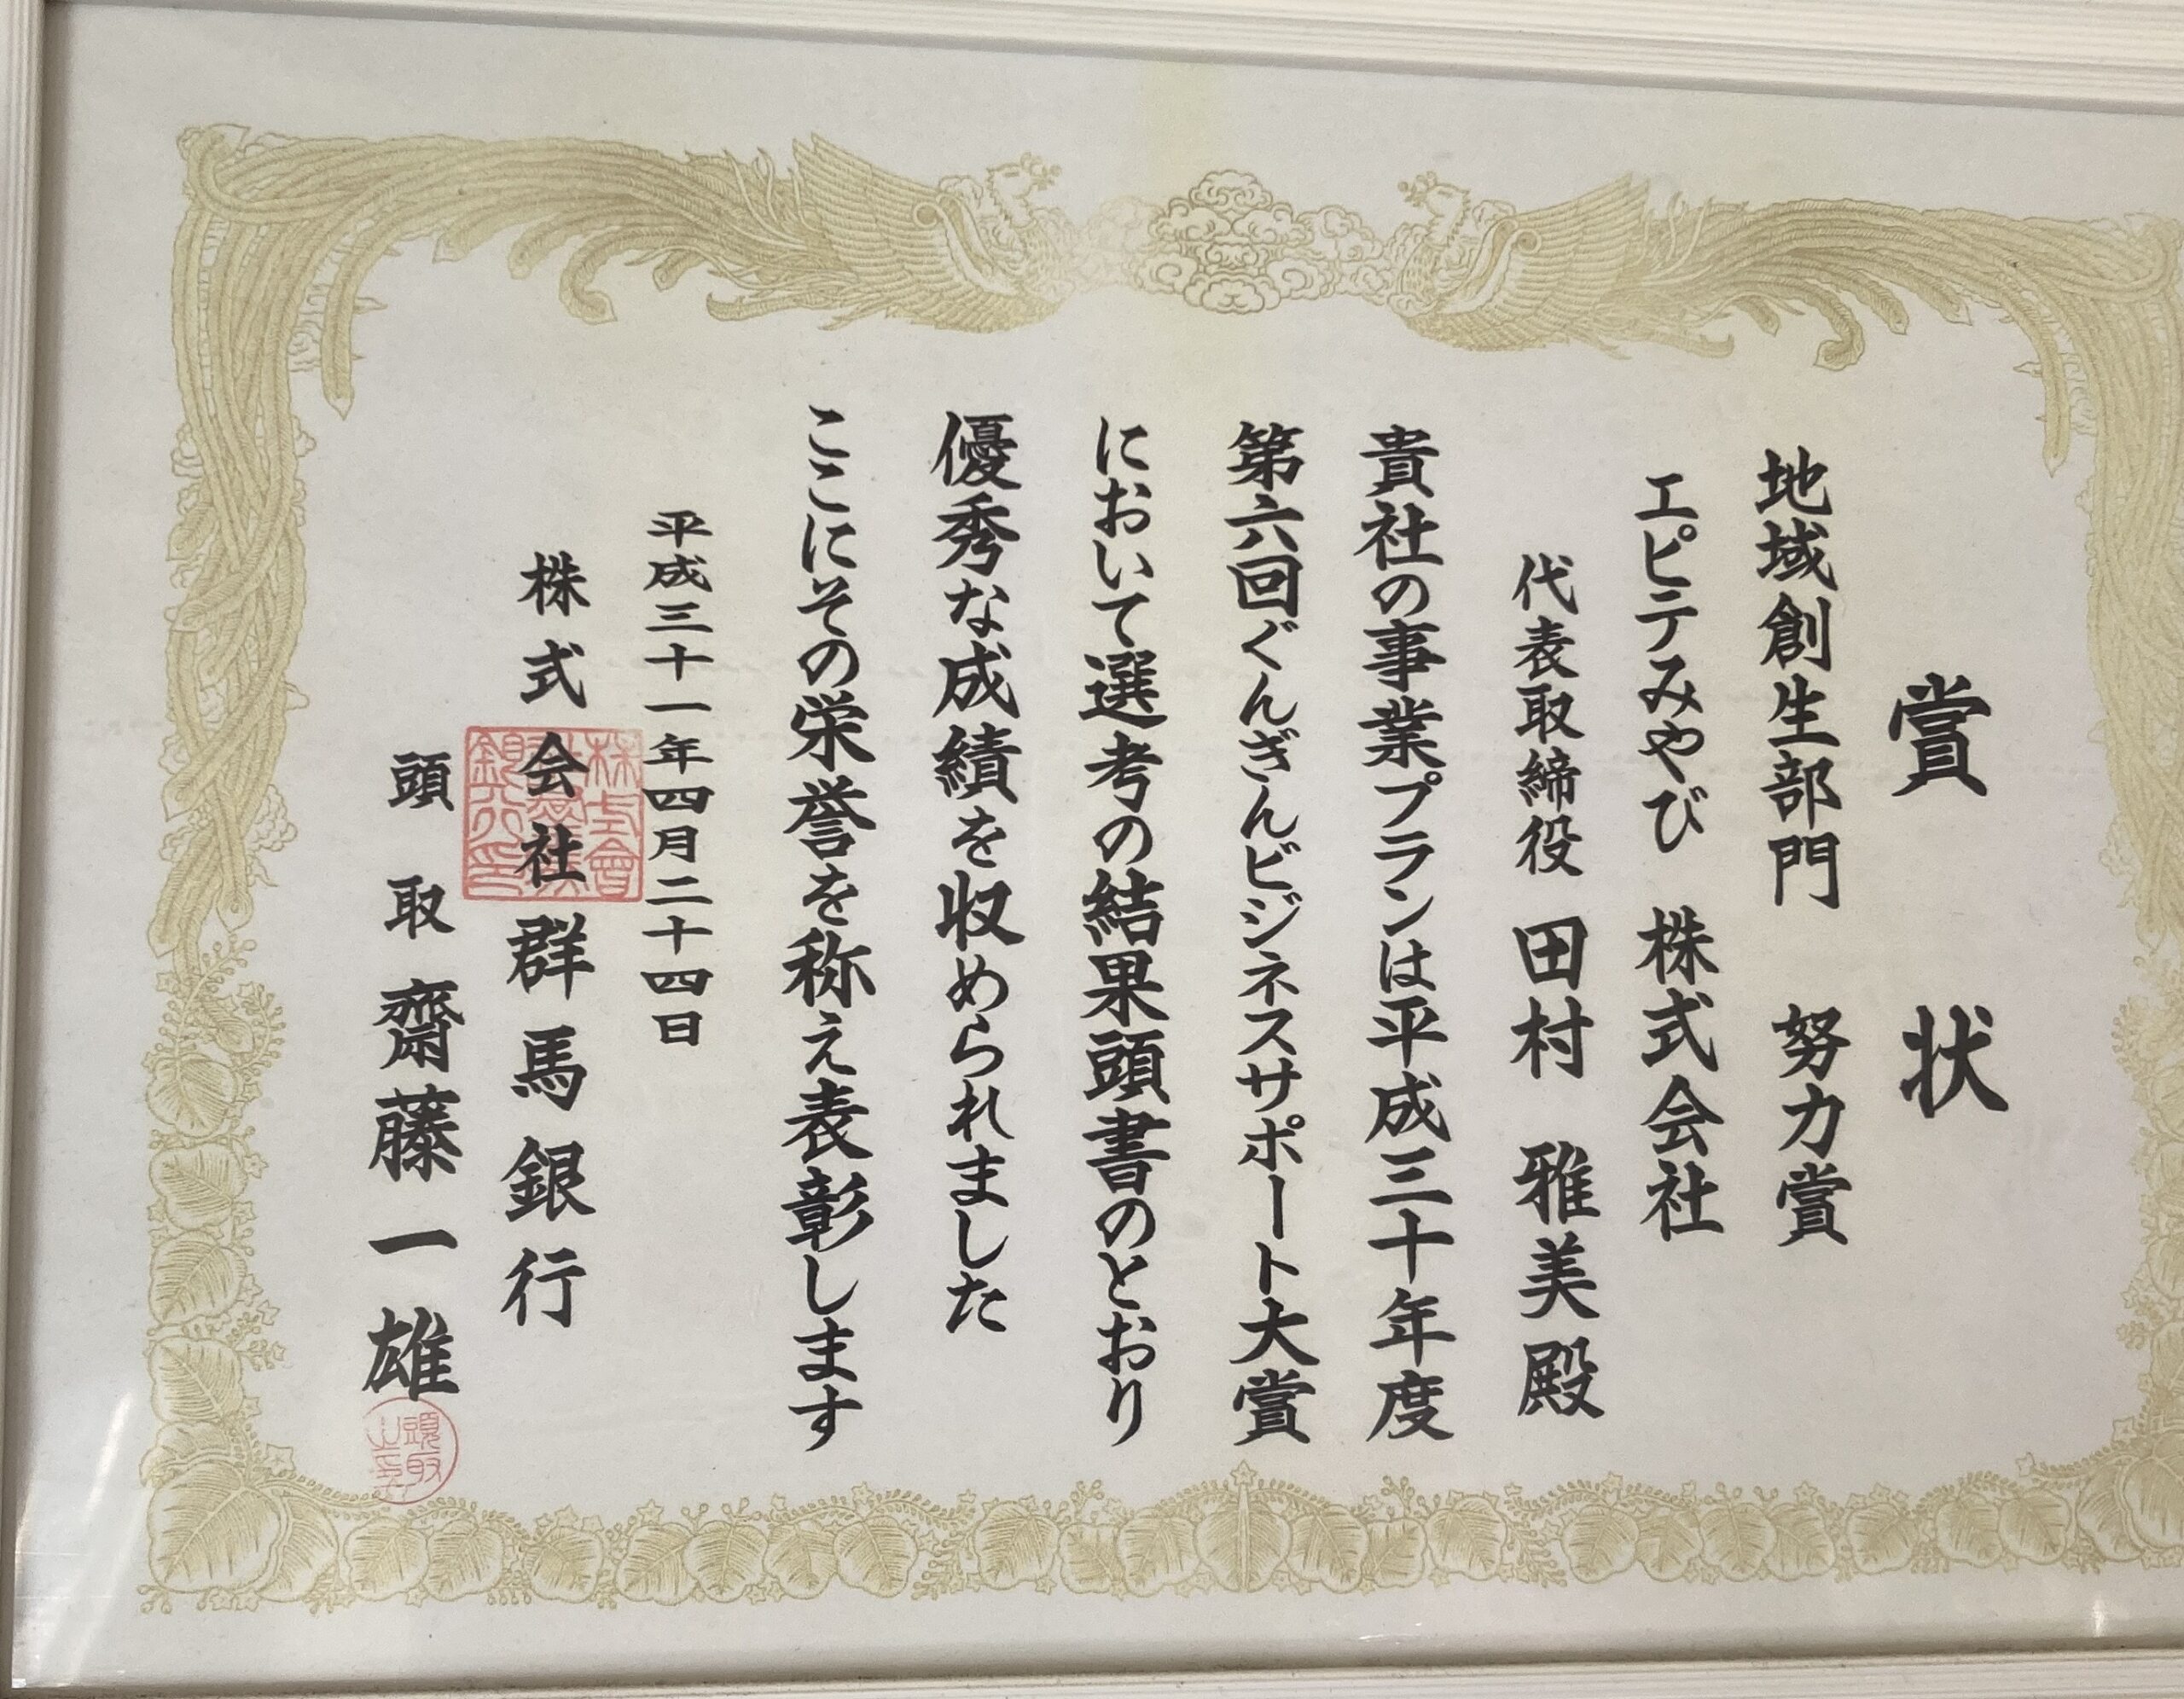 賞状
地域創生部門 努力賞
エピテみやび 株式会社
代表取締役 田村 雅美 殿
貴社の事業プランは平成三十年度
第六回ぐんぎんビジネスサポート大賞
において選考の結果頭書のとおり
優秀な成績を収められました
ここにその栄誉を称え表彰します
平成三十一年四月二十四日
株式会社群馬銀行
頭取 齋藤一雄